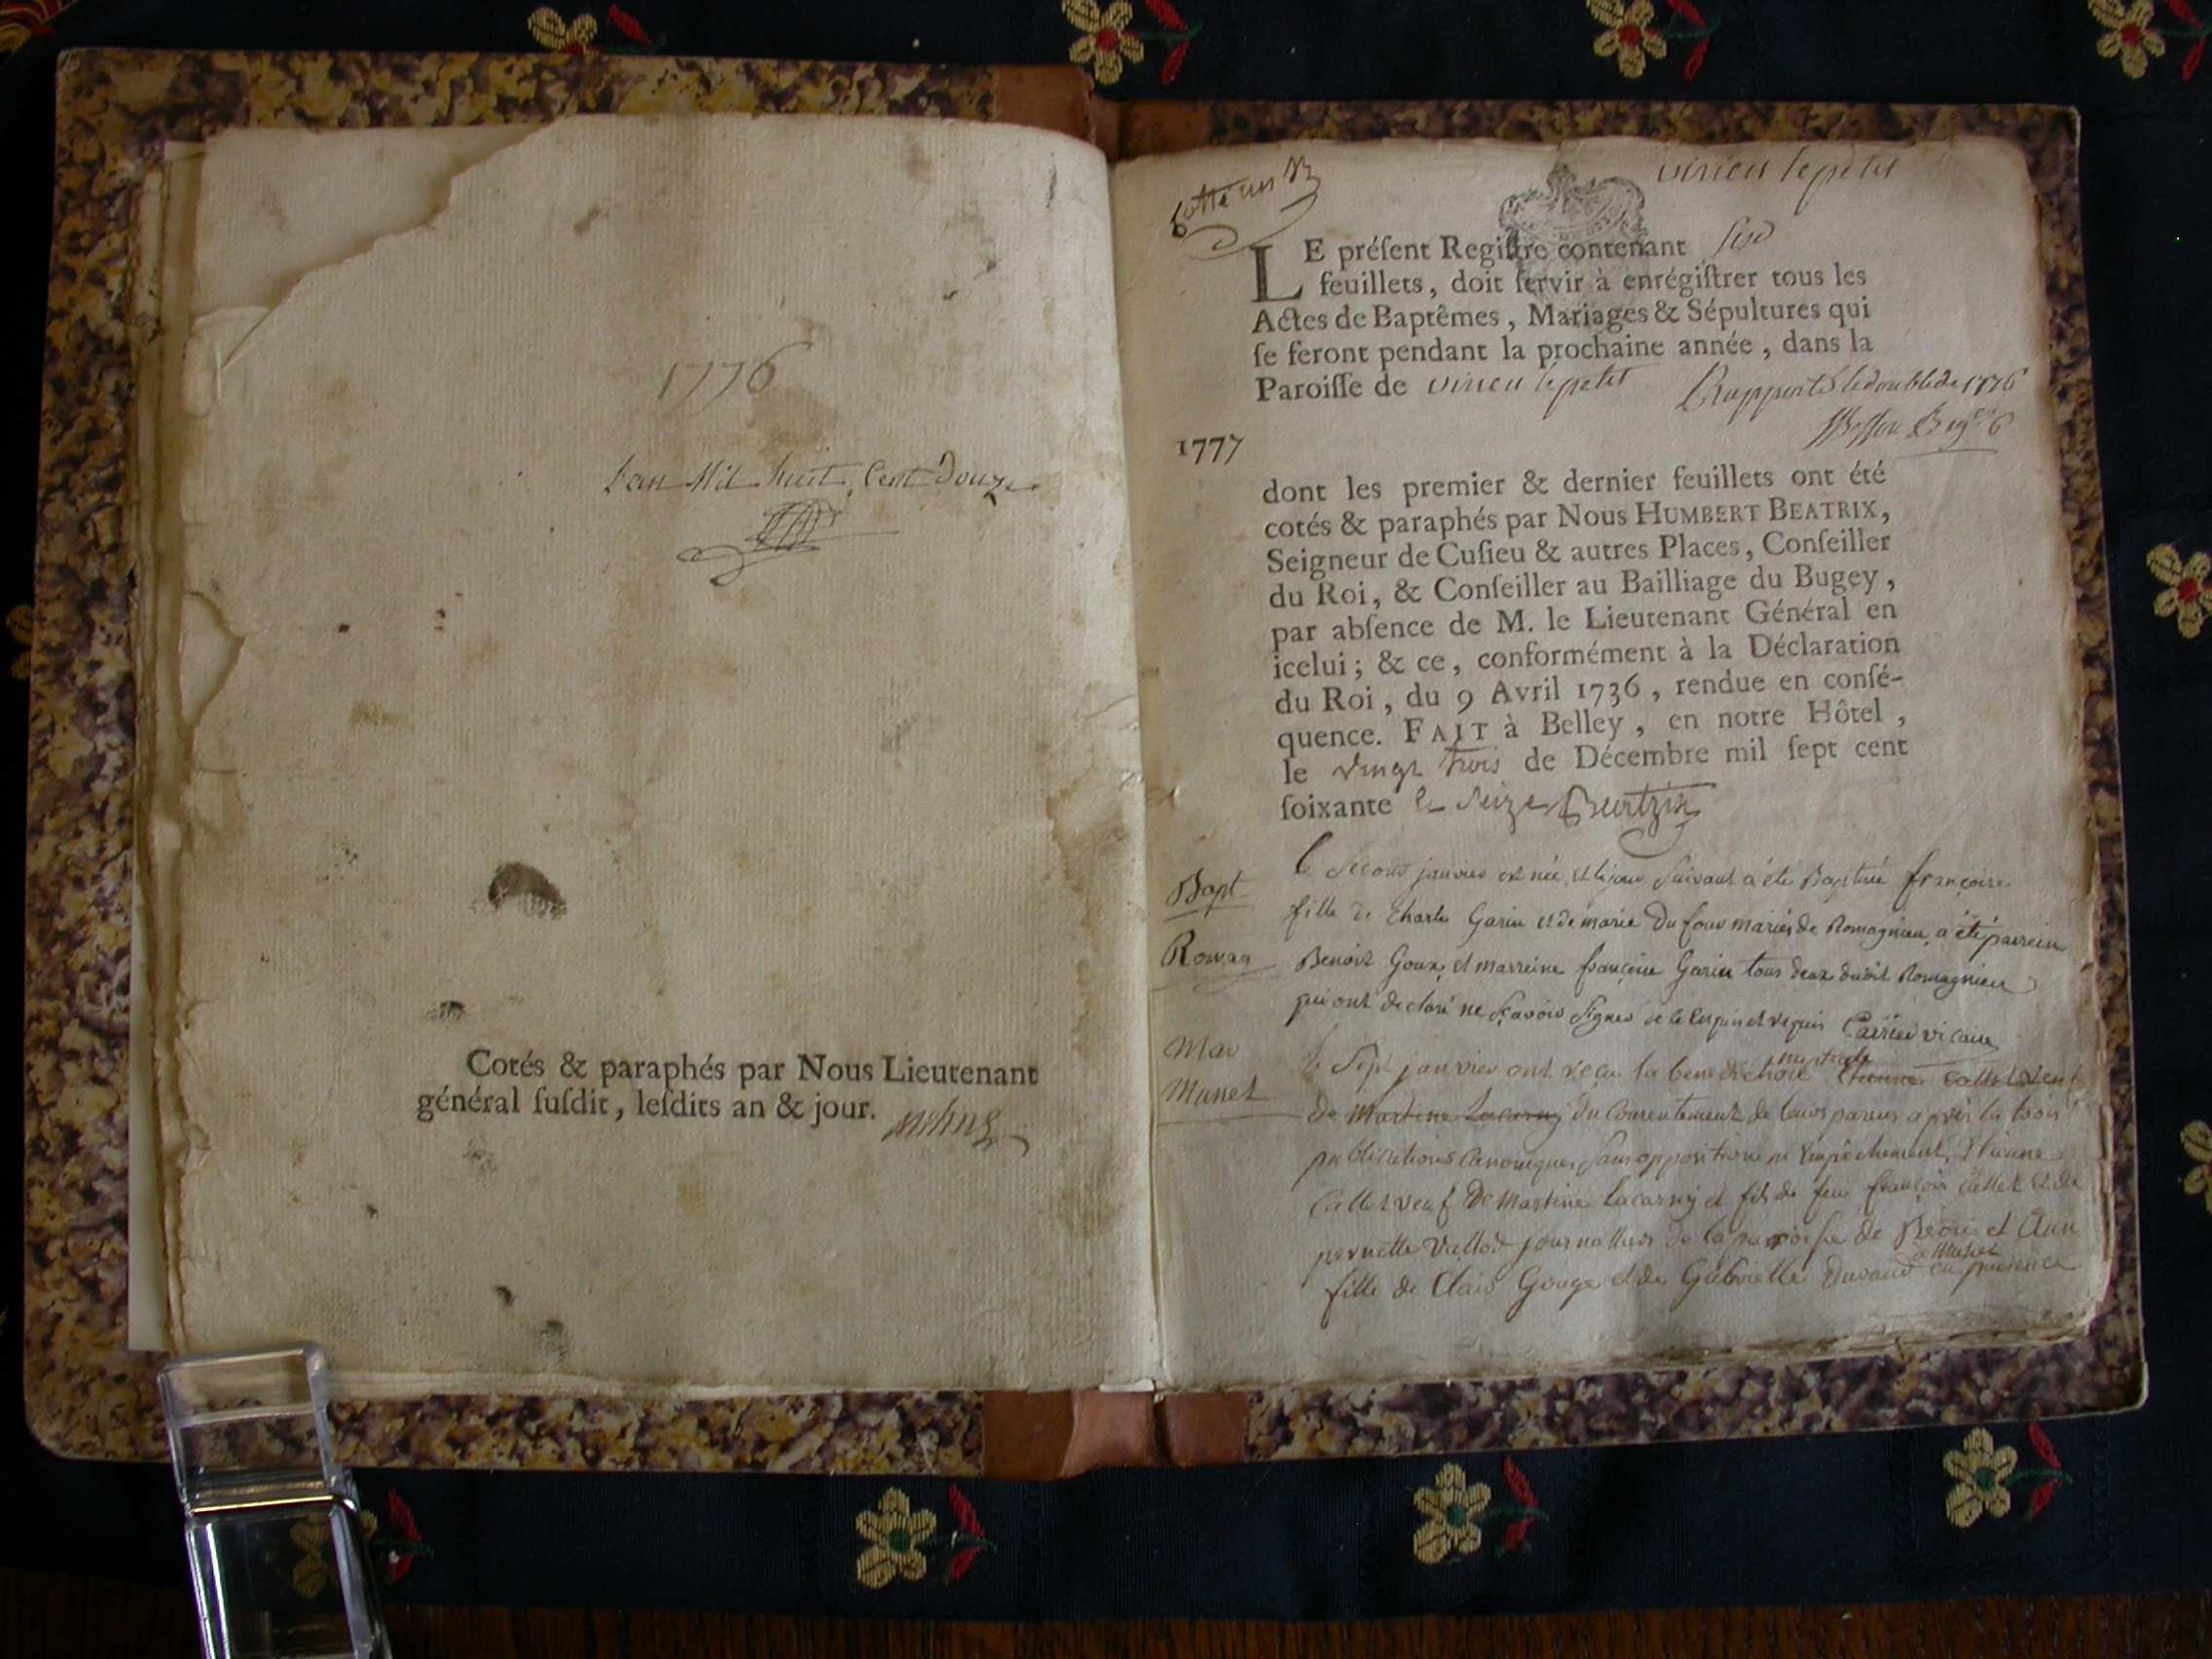 1776
L'an Mil huit Cent Douze
Cotés & paraphés par Nous Lieutenant
général ſuſdit, leſdits an & jour.
Cotté un
virieu le petit
LE préſent Regiſtre contenant six
feuillets, doit ſervir à enrégiſtrer tous les
Actes de Baptêmes, Mariages & Sépultures qui
ſe feront pendant la prochaine année, dans la
Paroiſſe de virieu le petit
Rapporté le double de 1776
1777
dont les premier & dernier feuillets ont été
cotés & paraphés par Nous HUMBERT BEATRIX,
Seigneur de Cuſieu & autres Places, Conſeiller
du Roi, & Conſeiller au Bailliage du Bugey,
par abſence de M. le Lieutenant Général en
icelui; & ce, conformément à la Déclaration
du Roi, du 9 Avril 1736, rendue en conſé-
quence. FAIT à Belley, en notre Hôtel,
le vingt trois de Décembre mil ſept cent
ſoixante & seize
Bapt
Romag
le second janvier est née, et le jour suivant a été Baptisée françoise
fille de Charle Garin et de marie Du four mariés de Romagnieu, a été parrein
Benoit Goux et marreine françoise Garin tous deux dudit Romagnieu
qui ont declaré ne sçavoir signer de ce enquis et requis Carrier vicaire
Mar
Munet
le sept janvier ont reçu la benediction nuptiale Etienne Callet veuf
de Martine Lacarny du Consentement de leurs parens après les trois
publications Canoniques, sans opposition ni Empêchement, Etienne
Callet veuf De Martine Lacarny et fils de feu françois Callet et de
pernette Vallod journallier de la paroisse de Béon et Ann
fille de Clair Gouge et de Gabrielle Durand de Munet en presence